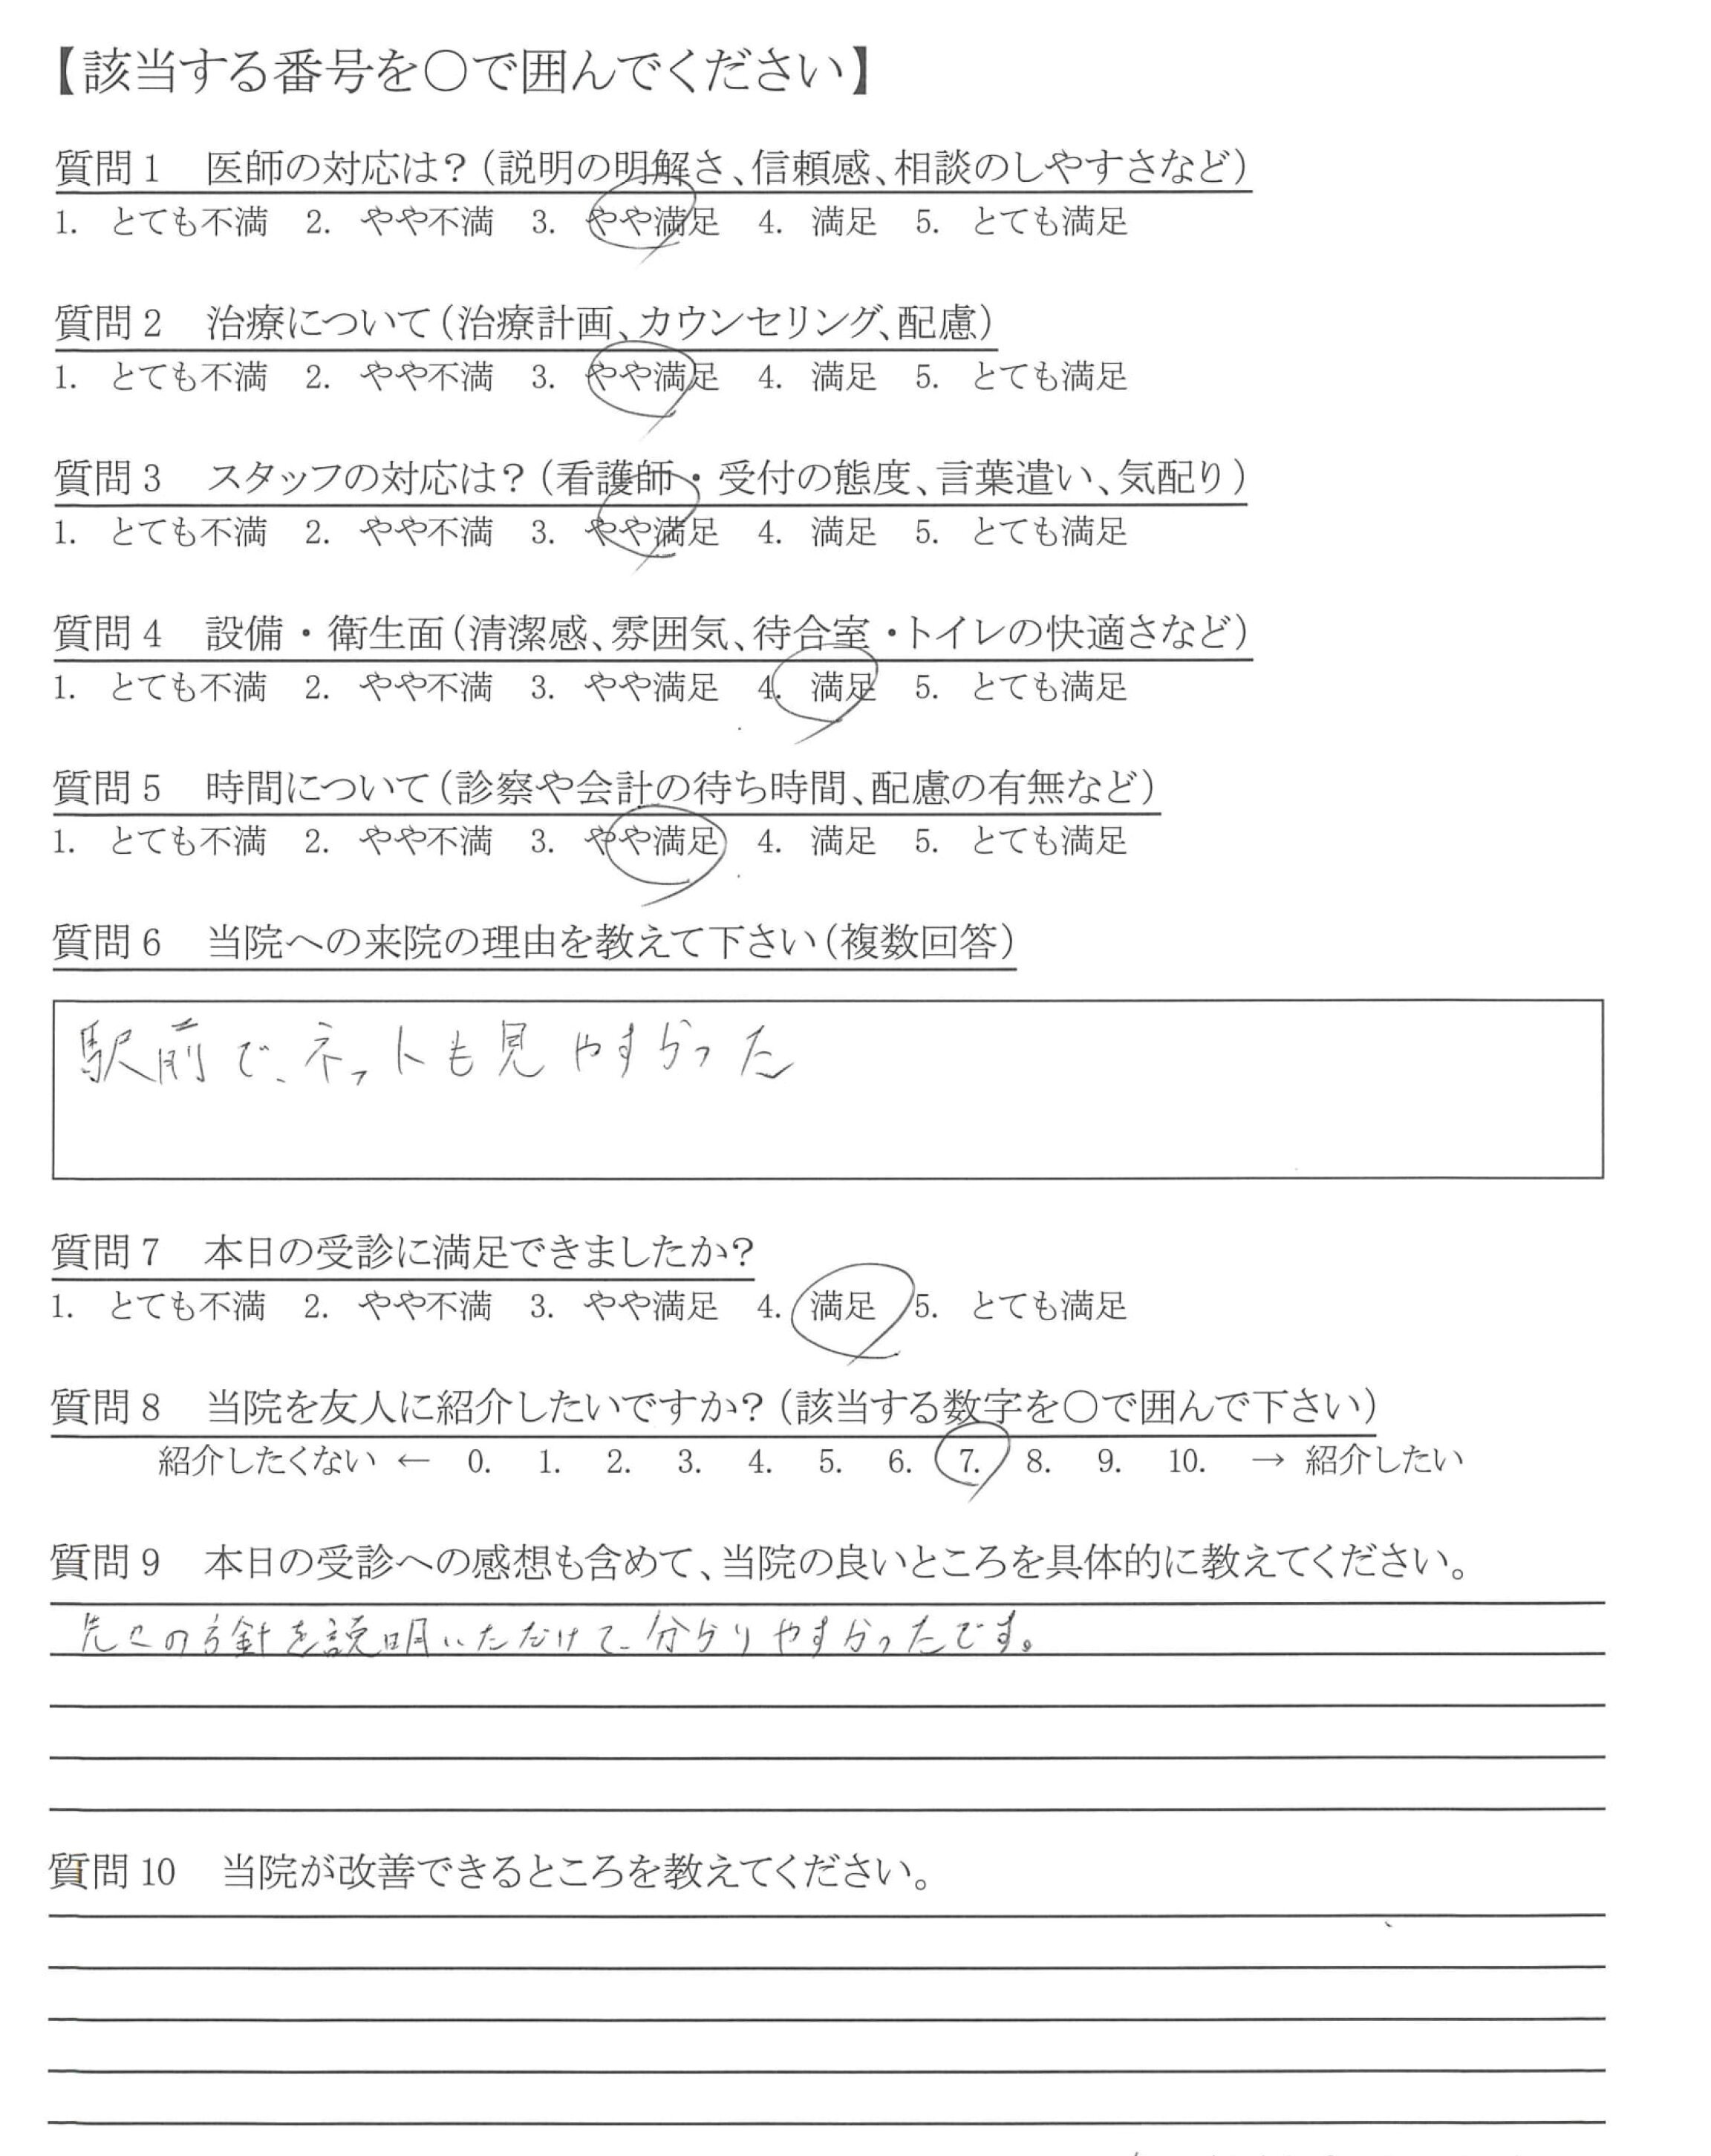 【該当する番号を○で囲んでください】
質問1　医師の対応は？（説明の明解さ、信頼感、相談のしやすさなど）
1.　とても不満　2.　やや不満　3.　やや満足　4.　満足　5.　とても満足
質問2　治療について（治療計画、カウンセリング、配慮）
1.　とても不満　2.　やや不満　3.　やや満足　4.　満足　5.　とても満足
質問3　スタッフの対応は？（看護師・受付の態度、言葉遣い、気配り）
1.　とても不満　2.　やや不満　3.　やや満足　4.　満足　5.　とても満足
質問4　設備・衛生面（清潔感、雰囲気、待合室・トイレの快適さなど）
1.　とても不満　2.　やや不満　3.　やや満足　4.　満足　5.　とても満足
質問5　時間について（診察や会計の待ち時間、配慮の有無など）
1.　とても不満　2.　やや不満　3.　やや満足　4.　満足　5.　とても満足
質問6　当院への来院の理由を教えて下さい（複数回答）
駅前で、ネットも見やすかった
質問7　本日の受診に満足できましたか？
1.　とても不満　2.　やや不満　3.　やや満足　4.　満足　5.　とても満足
質問8　当院を友人に紹介したいですか？（該当する数字を○で囲んで下さい）
紹介したくない ← 0.　1.　2.　3.　4.　5.　6.　7.　8.　9.　10.　→ 紹介したい
質問9　本日の受診への感想も含めて、当院の良いところを具体的に教えてください。
の方針を説明いただけて、分かりやすかったです。
質問10　当院が改善できるところを教えてください。